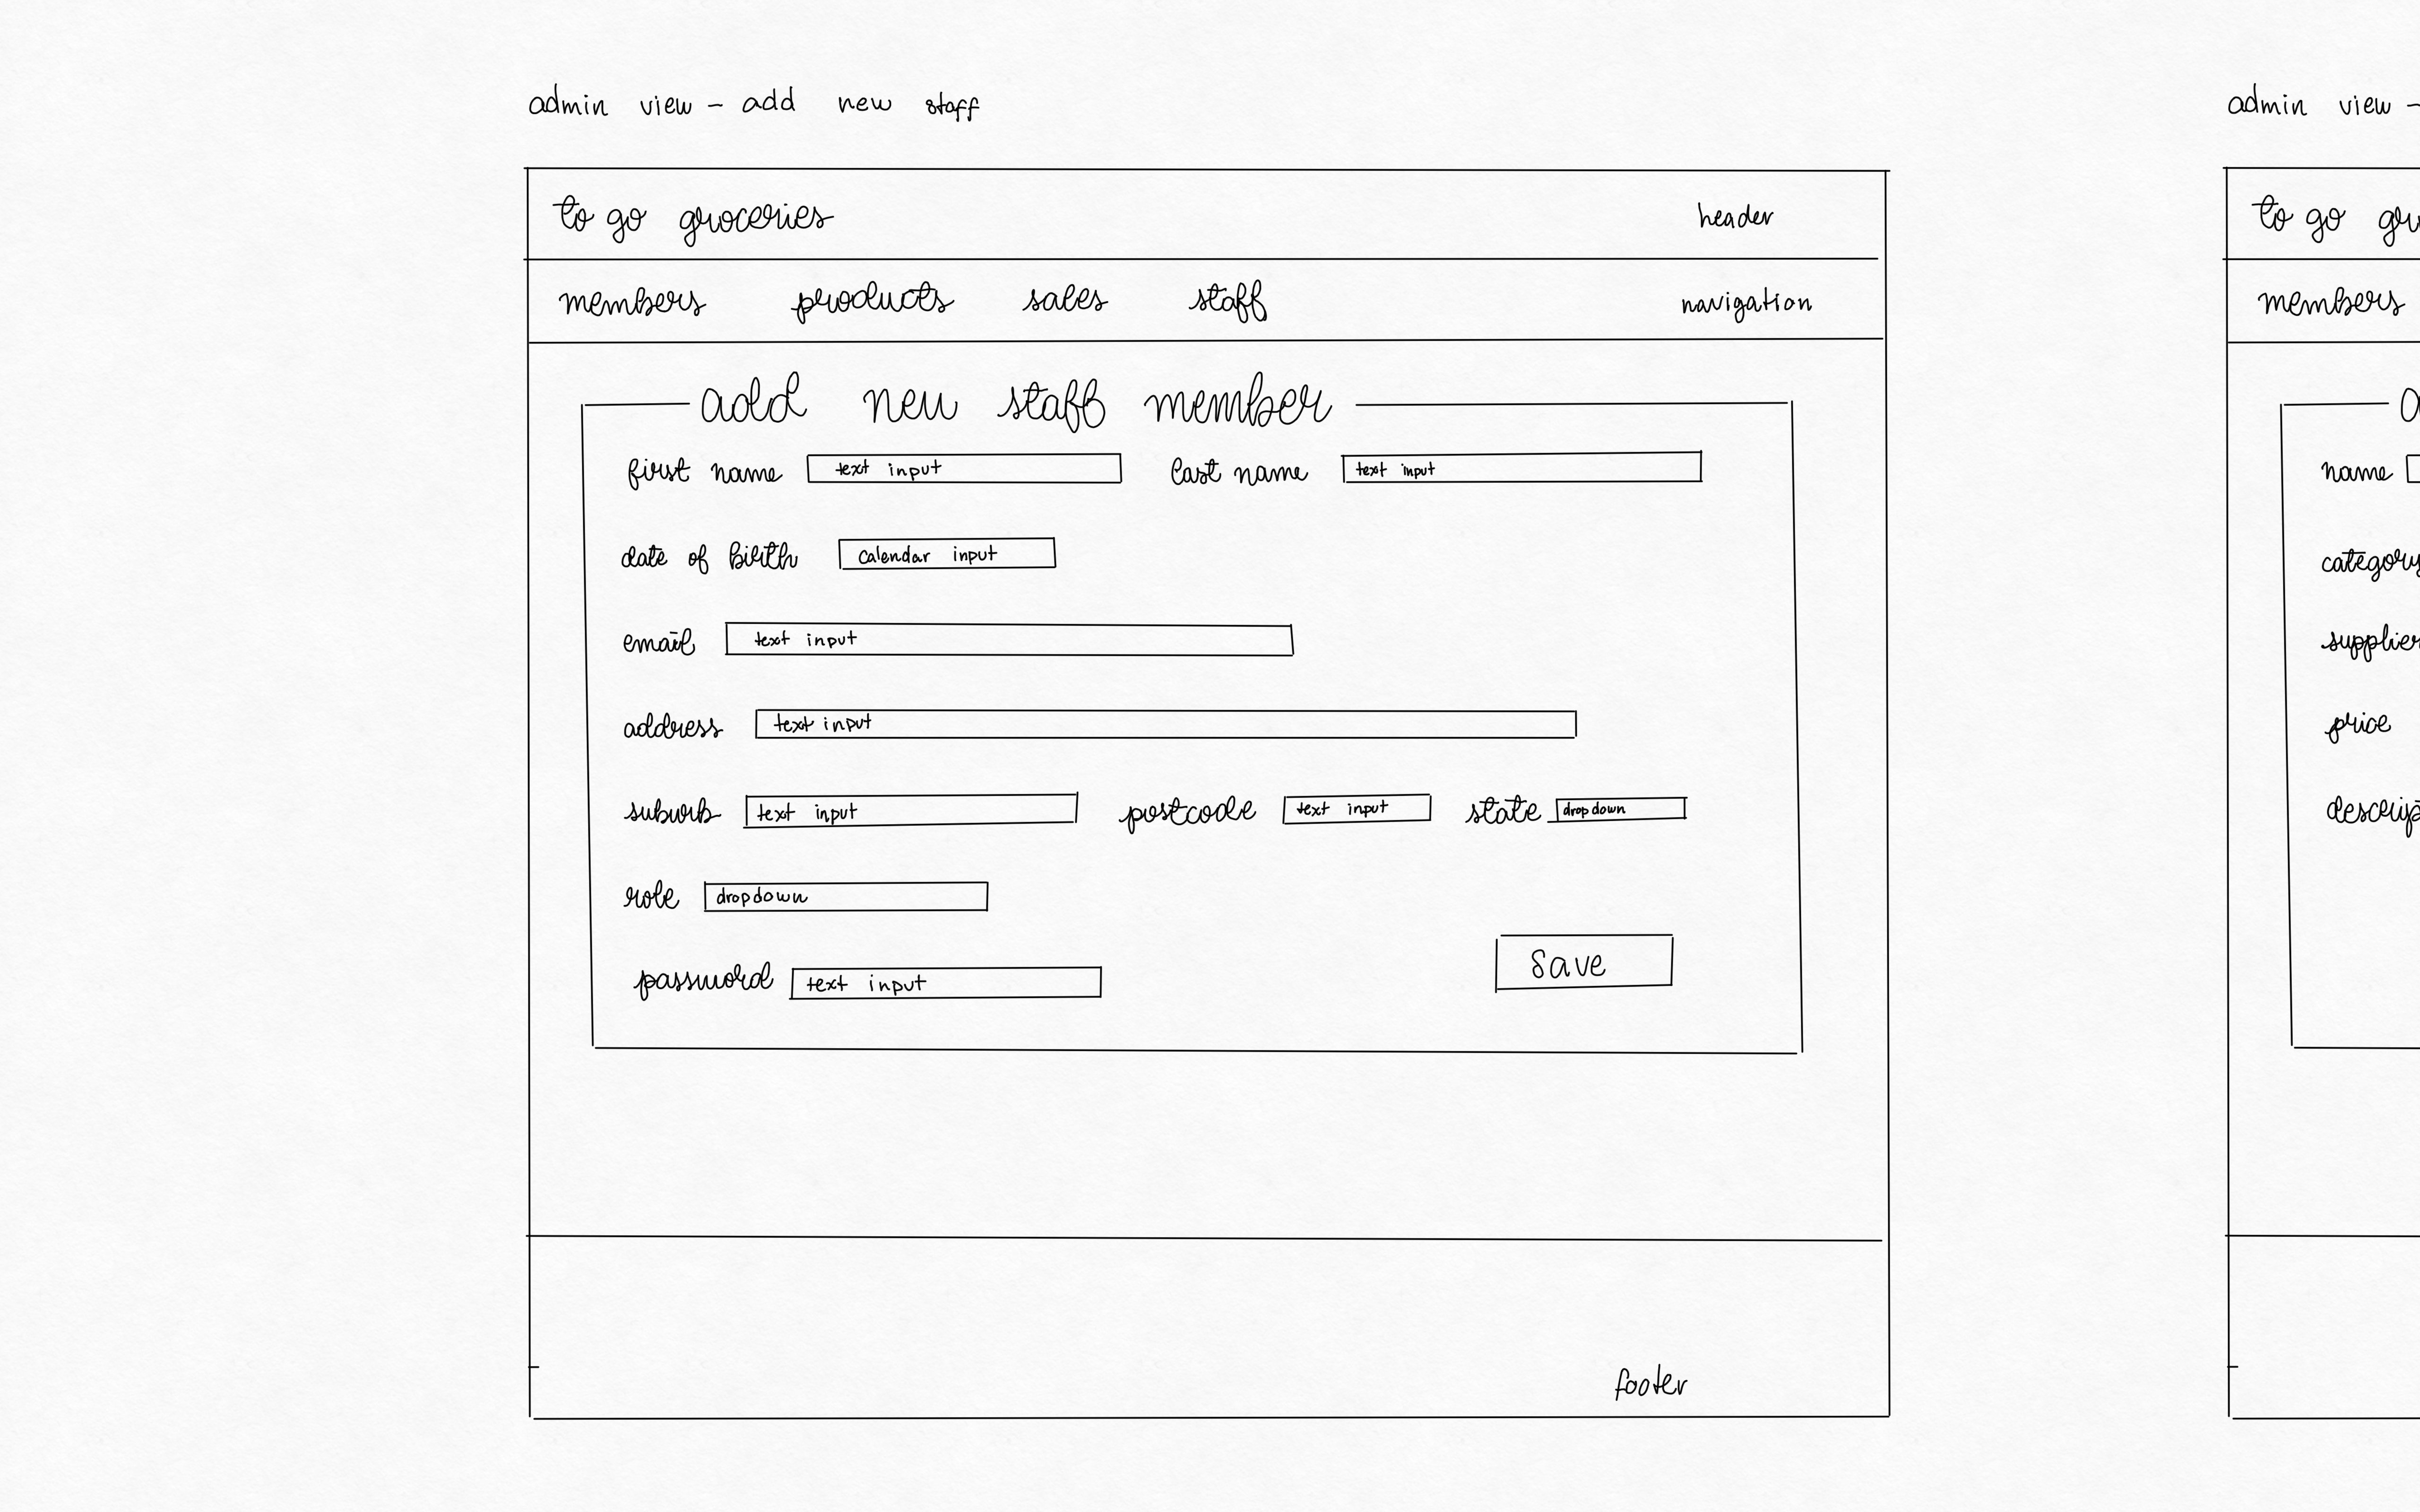 admin view - add new staff
to go groceries header
members products sales staff navigation
add new staff member
first name text input last name text input
date of birth calendar input
email text input
address text input
suburb text input postcode text input state dropdown
role dropdown
password text input
save
footer
admin view -
to go
members
name
category
supplier
price